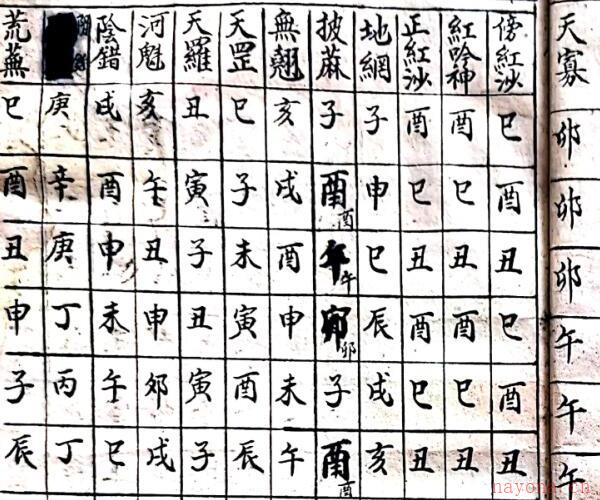 天寡 卯 卯 卯 午 午 午
傍紅沙 巳 酉 丑 巳 酉 丑
紅吟神 酉 巳 丑 酉 巳 丑
正紅沙 酉 巳 丑 酉 巳 丑
地網 子 申 巳 辰 戌 亥
披蔴 子 酉 酉 午 午 卯 卯 子 酉 酉
無翹 亥 戌 酉 申 未 午
天罡 巳 子 未 寅 酉 辰
天羅 丑 寅 子 丑 寅 子
河魁 亥 午 丑 申 卯 戌
陰錯 戌 酉 申 未 午 巳
庚 辛 庚 丁 丙 丁
荒蕪 巳 酉 丑 申 子 辰
nayona.cn